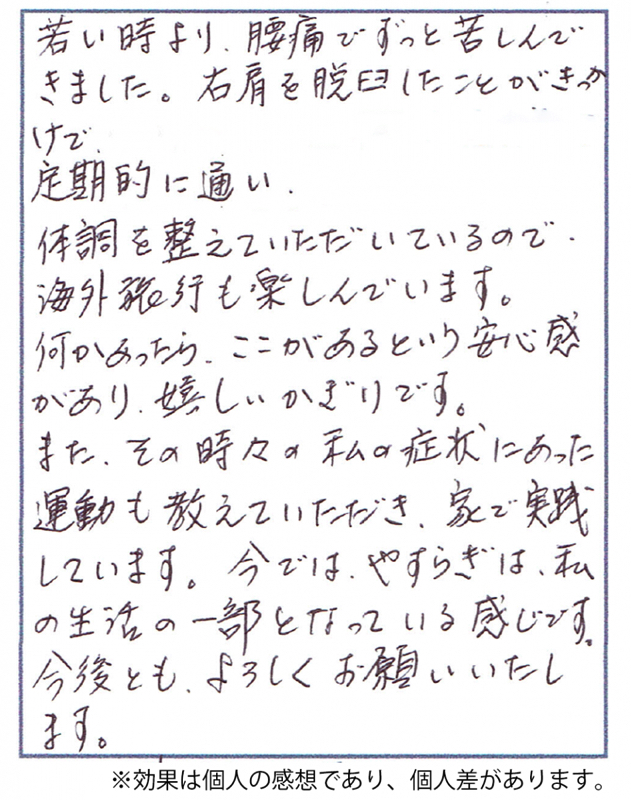 若い時より、腰痛でずっと苦しんで
きました。右肩を脱臼したことがきっか
けで、
定期的に通い、
体調を整えていただいているので、
海外旅行も楽しんでいます。
何かあったら、ここがあるという安心感
があり、嬉しいかぎりです。
また、その時々の私の症状にあった
運動も教えていただき、家で実践
しています。今では、やすらぎは、私
の生活の一部となっている感じです。
今後とも、よろしくお願いいたし
ます。
※効果は個人の感想であり、個人差があります。